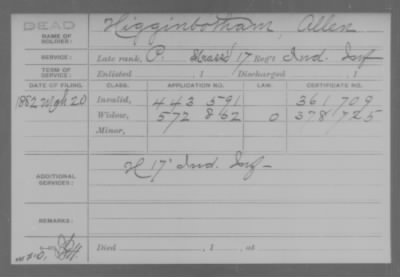 DEAD
NAME OF SOLDIER: Higginbotham, Allen
SERVICE: Late rank, P. 17 Reg't Ind. Inf
TERM OF SERVICE: Enlisted , 1 Discharged , 1
DATE OF FILING. CLASS. APPLICATION NO. LAW. CERTIFICATE NO.
1882 20 Invalid, 443 591 361 709
Widow, 572 862 0 378 725
Minor,
ADDITIONAL SERVICES: H 17" Ind. Inf
REMARKS:
Died , 1 , at